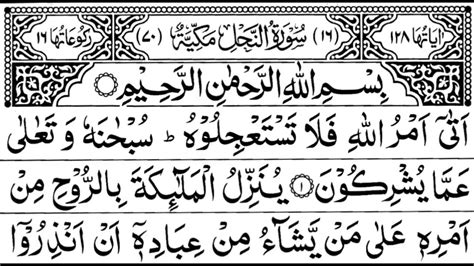 اٰیَاتُهَا ١٢٨ (١٦) سُوْرَةُ النَّحْلِ مَكِّيَّةٌ (٧٠) رُكُوْعَاتُهَا ١٦
بِسْمِ اللّٰهِ الرَّحْمٰنِ الرَّحِيْمِ ۝
اَتٰۤى اَمْرُ اللّٰهِ فَلَا تَسْتَعْجِلُوْهُ ؕ سُبْحٰنَهٗ وَ تَعٰلٰى
عَمَّا يُشْرِكُوْنَ ۝١ يُنَزِّلُ الْمَلٰٓئِكَةَ بِالرُّوْحِ مِنْ
اَمْرِهٖ عَلٰى مَنْ يَّشَآءُ مِنْ عِبَادِهٖۤ اَنْ اَنْذِرُوْۤا